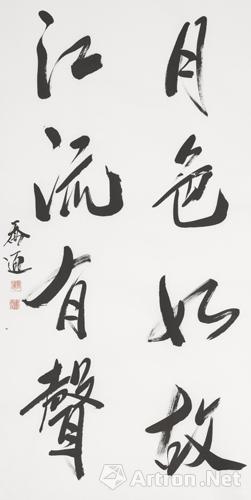 月色如故
江流有聲
Artron.Net